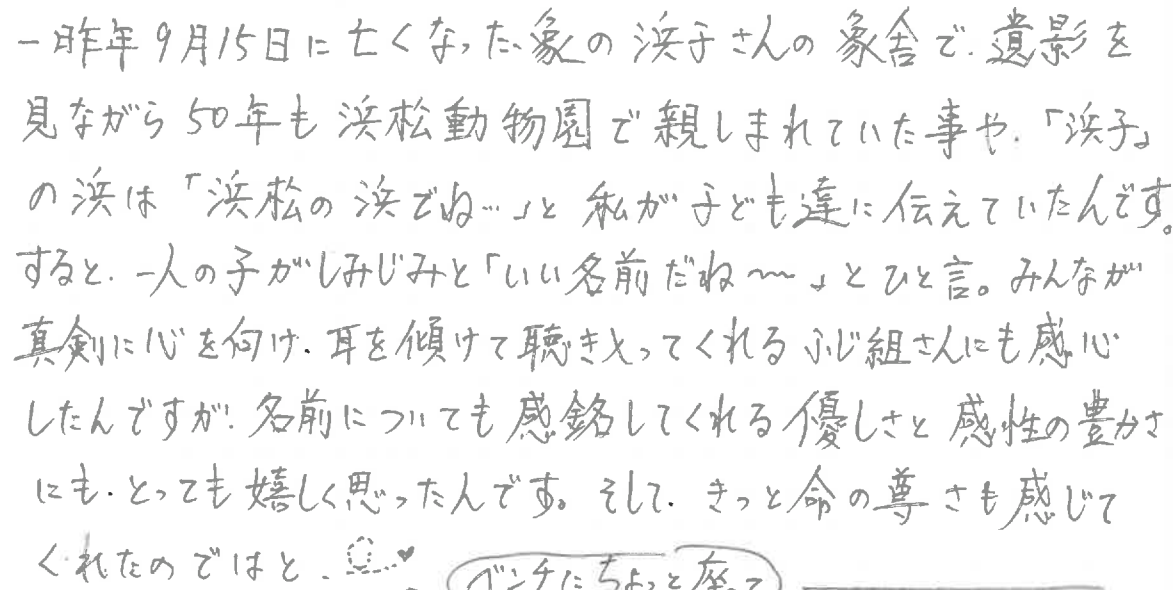 一昨年9月15日に亡くなった、象の浜子さんの象舎で、遺影を
見ながら50年も浜松動物園で親しまれていた事や、「浜子」
の浜は「浜松の浜でね…」と私が子ども達に伝えていたんです。
すると、一人の子がしみじみと「いい名前だね〜」とひと言。みんなが
真剣に心を向け、耳を傾けて聴きとってくれるふじ組さんにも感心
したんですが、名前についても感銘してくれる優しさと感性の豊かさ
にも、とっても嬉しく思ったんです。そして、きっと命の尊さも感じて
くれたのではと、
ベンチにちょっと座って